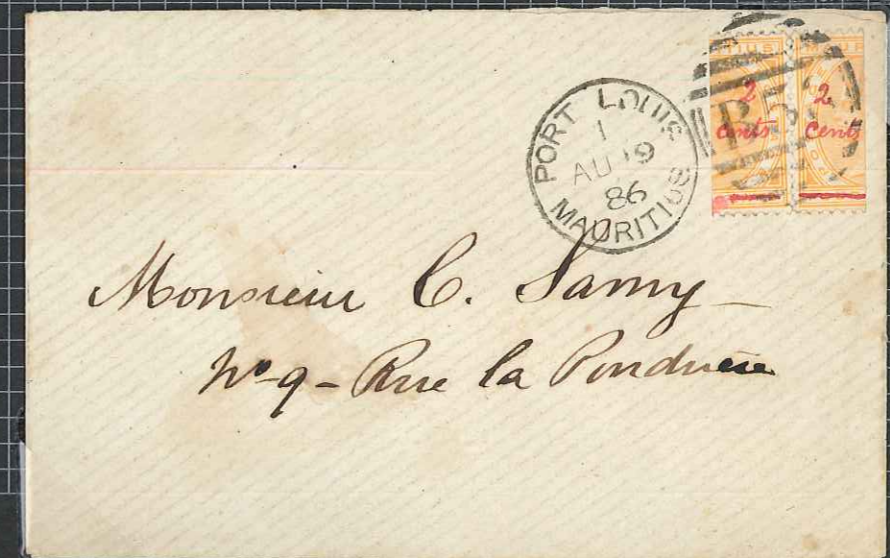 PORT LOUIS
1
AU 19
86
MAURITIUS
B53
2 cents
2 cents
Monsieur C. Samy
No 9 - Rue la Poudrière